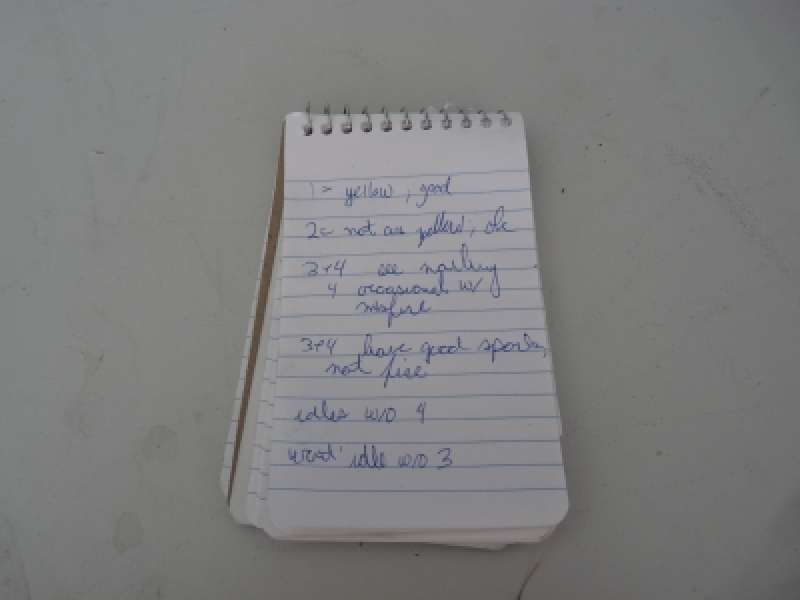 1 = yellow, good
2 = not as yellow, ok
3+4 see
4 occasional w/
misfire
3+4 have good spark,
not fire
idles w/o 4
wont idle w/o 3